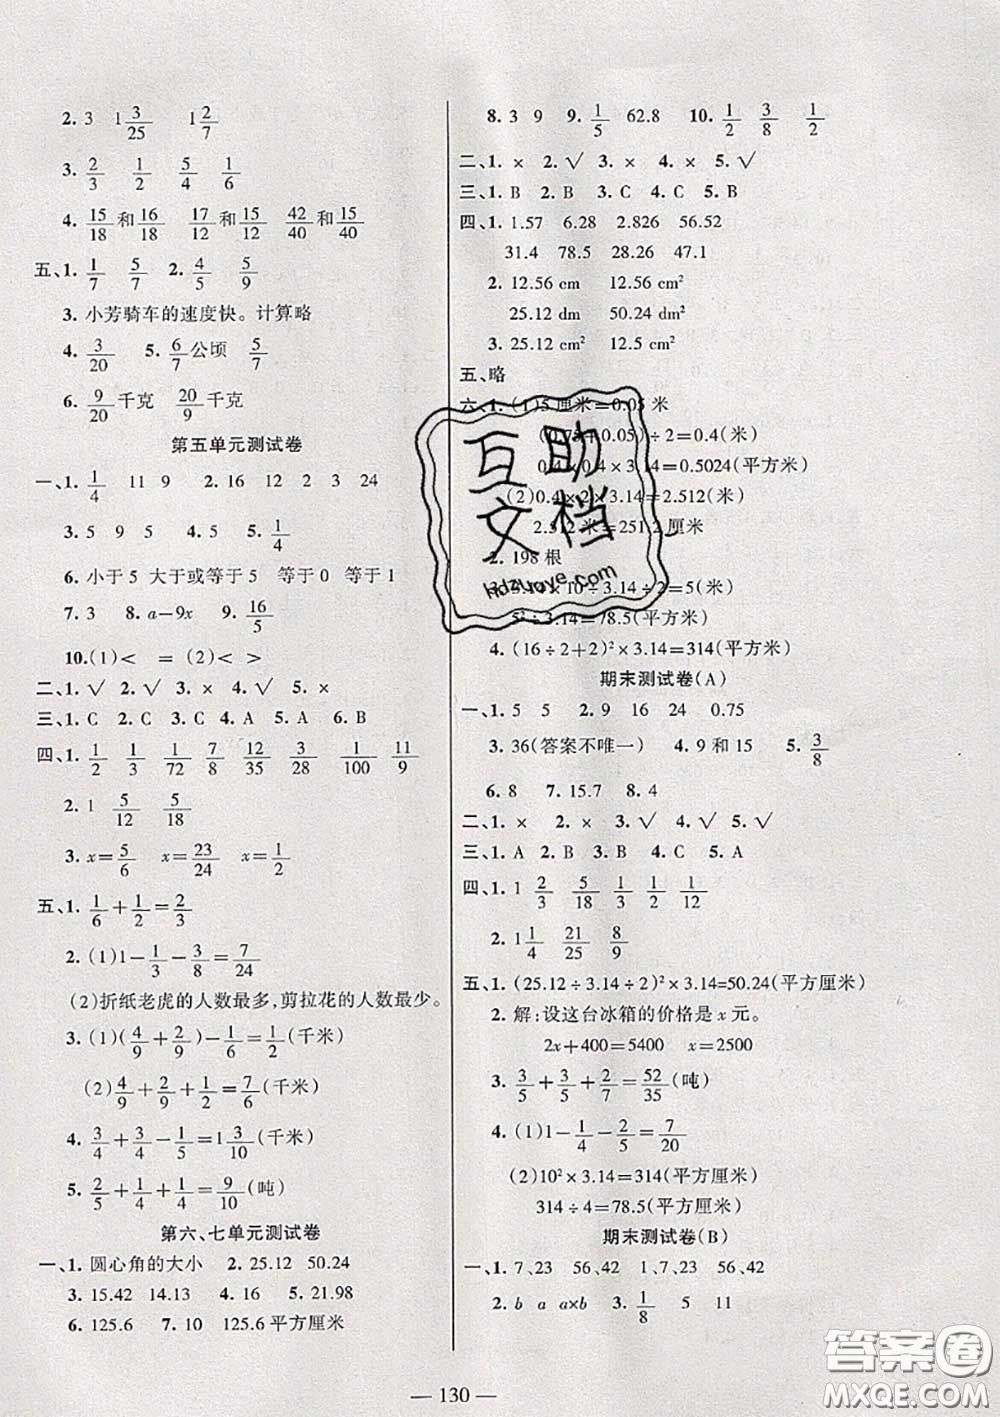 2. 3 1 3/25 1 2/7
3. 2/3 1/2 5/4 1/6
4. 15/18和16/18 17/12和15/12 42/40和15/40
五、1. 1/7 5/7 2. 4/5 5/9
3. 小芳骑车的速度快。计算略
4. 3/20 5. 6/7公顷 5/7
6. 9/20千克 20/9千克
第五单元测试卷
一、1. 1/4 11 9 2. 16 12 2 3 24
3. 5 9 5 4. 5 5. 1/4
6. 小于5 大于或等于5 等于0 等于1
7. 3 8. a－9x 9. 16/5
10. (1)＜ ＝ (2)＜ ＞
二、1. √ 2. √ 3. × 4. √ 5. ×
三、1. C 2. C 3. C 4. A 5. A 6. B
四、1. 1/2 1/3 1/72 7/8 12/35 3/28 1/100 11/9
2. 1 5/12 5/18
3. x＝5/6 x＝23/24 x＝1/2
五、1. 1/6＋1/2＝2/3
2. (1)1－1/3－3/8＝7/24
(2)折纸老虎的人数最多,剪拉花的人数最少。
3. (1)(4/9＋2/9)－1/6＝1/2(千米)
(2)4/9＋2/9＋1/2＝7/6(千米)
4. 3/4＋3/4－1/5＝1 3/10(千米)
5. 2/5＋1/4＋1/4＝9/10(吨)
第六、七单元测试卷
一、1. 圆心角的大小 2. 25.12 50.24
3. 15.42 14.13 4. 16 5. 21.98
6. 125.6 7. 10 125.6平方厘米
8. 3 9 9. 1/5 62.8 10. 1/2 3/8 1/2
二、1. × 2. √ 3. × 4. × 5. √
三、1. B 2. B 3. C 4. C 5. B
四、1. 1.57 6.28 2.826 56.52
31.4 78.5 28.26 47.1
2. 12.56 cm 12.56 cm²
25.12 dm 50.24 dm²
3. 25.12 cm² 12.5 cm²
五、略
六、1. (1)5厘米＝0.05米
(0.75＋0.05)÷2＝0.4(米)
0.4×0.4×3.14＝0.5024(平方米)
(2)0.4×2×3.14＝2.512(米)
2.512米＝251.2厘米
2. 198根
×10÷3.14÷2＝5(米)
5²×3.14＝78.5(平方米)
4. (16÷2＋2)²×3.14＝314(平方米)
期末测试卷(A)
一、1. 5 5 2. 9 16 24 0.75
3. 36(答案不唯一) 4. 9和15 5. 3/8
6. 8 7. 15.7 8. 4
二、1. × 2. × 3. √ 4. √ 5. √
三、1. A 2. B 3. B 4. C 5. A
四、1. 1 2/3 5/18 1/3 1/2 1/12
2. 1 1/4 21/25 8/9
五、1. (25.12÷3.14÷2)²×3.14=50.24(平方厘米)
2. 解:设这台冰箱的价格是x元。
2x＋400＝5400 x＝2500
3. 3/5＋3/5＋2/7＝52/35(吨)
4. (1)1－1/4－2/5＝7/20
(2)10²×3.14＝314(平方厘米)
314÷4＝78.5(平方厘米)
期末测试卷(B)
一、1. 7、23 56、42 1、7、23 56、42
2. b a a×b 3. 1/8 5 11
— 130 —
互助
文档
hdzuoye.com
答案圈
MXQE.COM